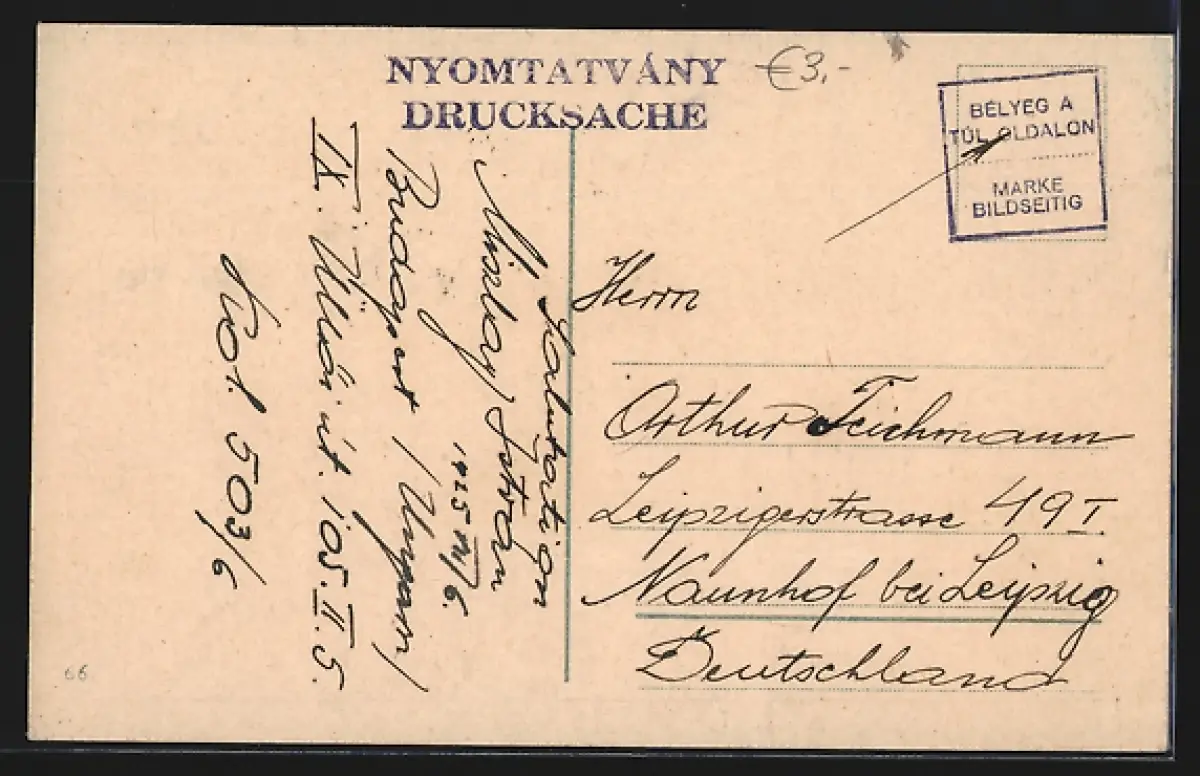 NYOMTATVÁNY
DRUCKSACHE
€3,-
BÉLYEG A
TÚL OLDALON
MARKE
BILDSEITIG
Miszlay István
1925 VII/6.
Budapest (Ungarn)
IX. Üllői út. 105. II. 5.
503/6
Herrn
Arthur Teichmann
Leipzigerstrasse 49 I
Naunhof bei Leipzig
Deutschland
66